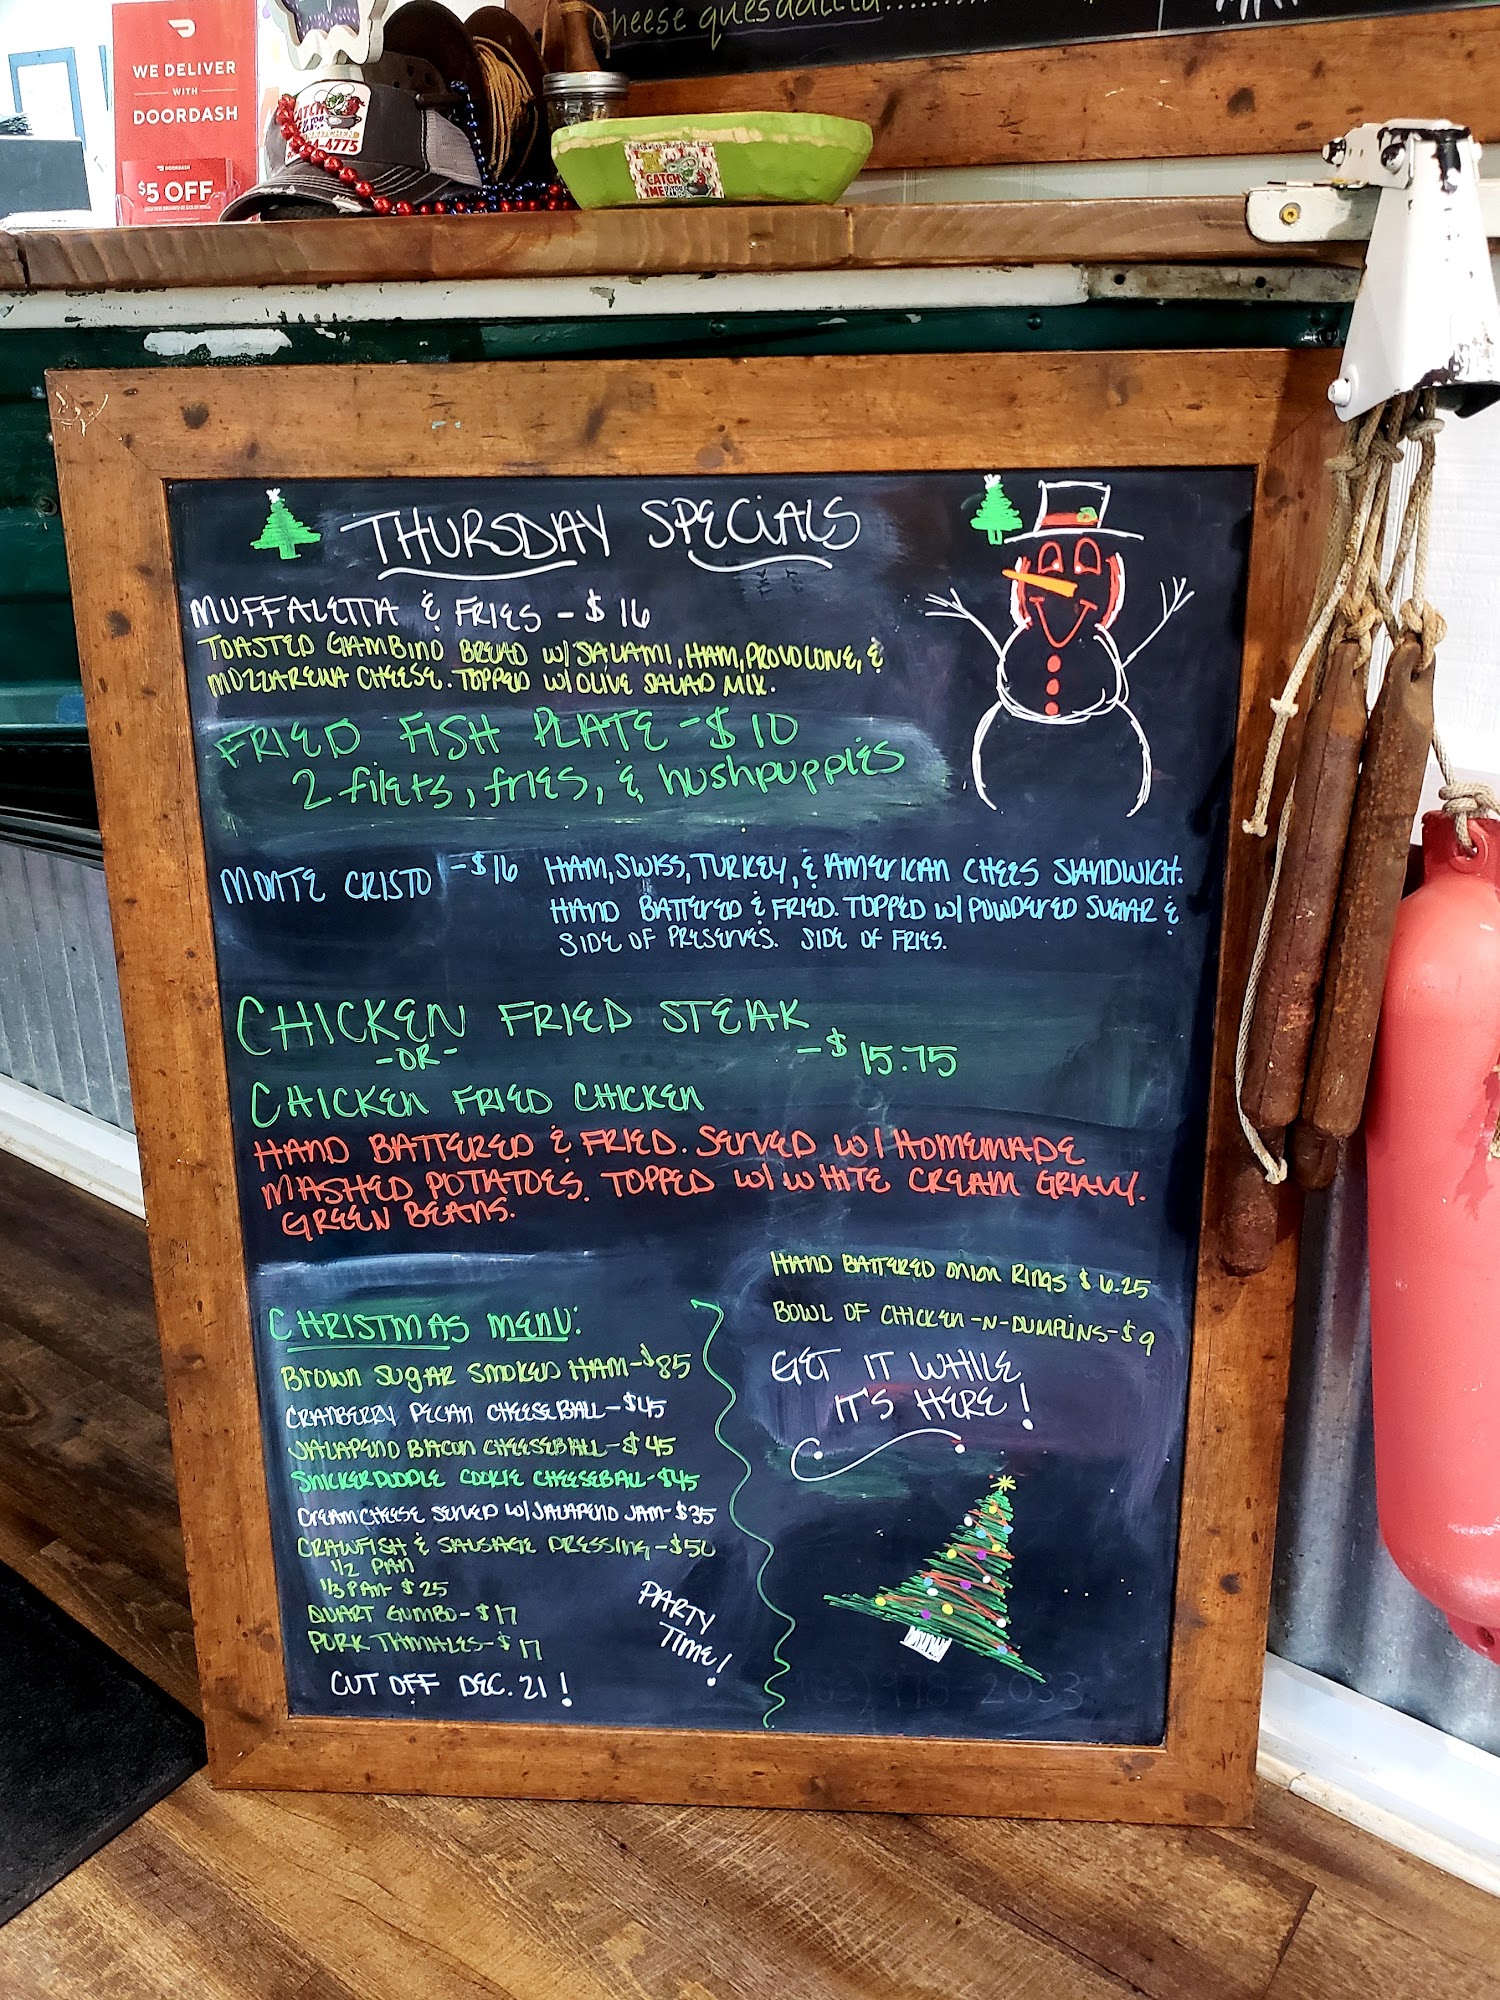 cheese quesadilla........
WE DELIVER
WITH
DOORDASH
DOORDASH
$5 OFF
CATCH
4-4775
CATCH
ME
THURSDAY SPECIALS
MUFFALETTA & FRIES - $16
TOASTED GAMBINO BREAD W/ SALAMI, HAM, PROVOLONE, &
MOZZARELLA CHEESE. TOPPED W/ OLIVE SALAD MIX.
FRIED FISH PLATE - $10
2 filets, fries, & hushpuppies
MONTE CRISTO - $16 HAM, SWISS, TURKEY, & AMERICAN CHEES SANDWICH.
HAND BATTERED & FRIED. TOPPED W/ POWDERED SUGAR &
SIDE OF PRESERVES. SIDE OF FRIES.
CHICKEN FRIED STEAK
-OR-
- $15.75
CHICKEN FRIED CHICKEN
HAND BATTERED & FRIED. SERVED W/ HOMEMADE
MASHED POTATOES. TOPPED W/ WHITE CREAM GRAVY.
GREEN BEANS.
HAND BATTERED ONION RINGS $6.25
BOWL OF CHICKEN-N-DUMPLINS-$9
GET IT WHILE
IT'S HERE!
CHRISTMAS MENU:
BROWN SUGAR SMOKED HAM-$85
CRANBERRY PECAN CHEESEBALL-$45
JALAPENO BACON CHEESEBALL-$45
SNICKERDOODLE COOKIE CHEESEBALL-$45
CREAMCHEESE SERVED W/ JALAPENO JAM-$35
CRAWFISH & SAUSAGE DRESSING-$50
1/2 PAN
1/3 PAN-$25
QUART GUMBO-$17
PORK TAMALES-$17
CUT OFF DEC. 21!
PARTY
TIME!